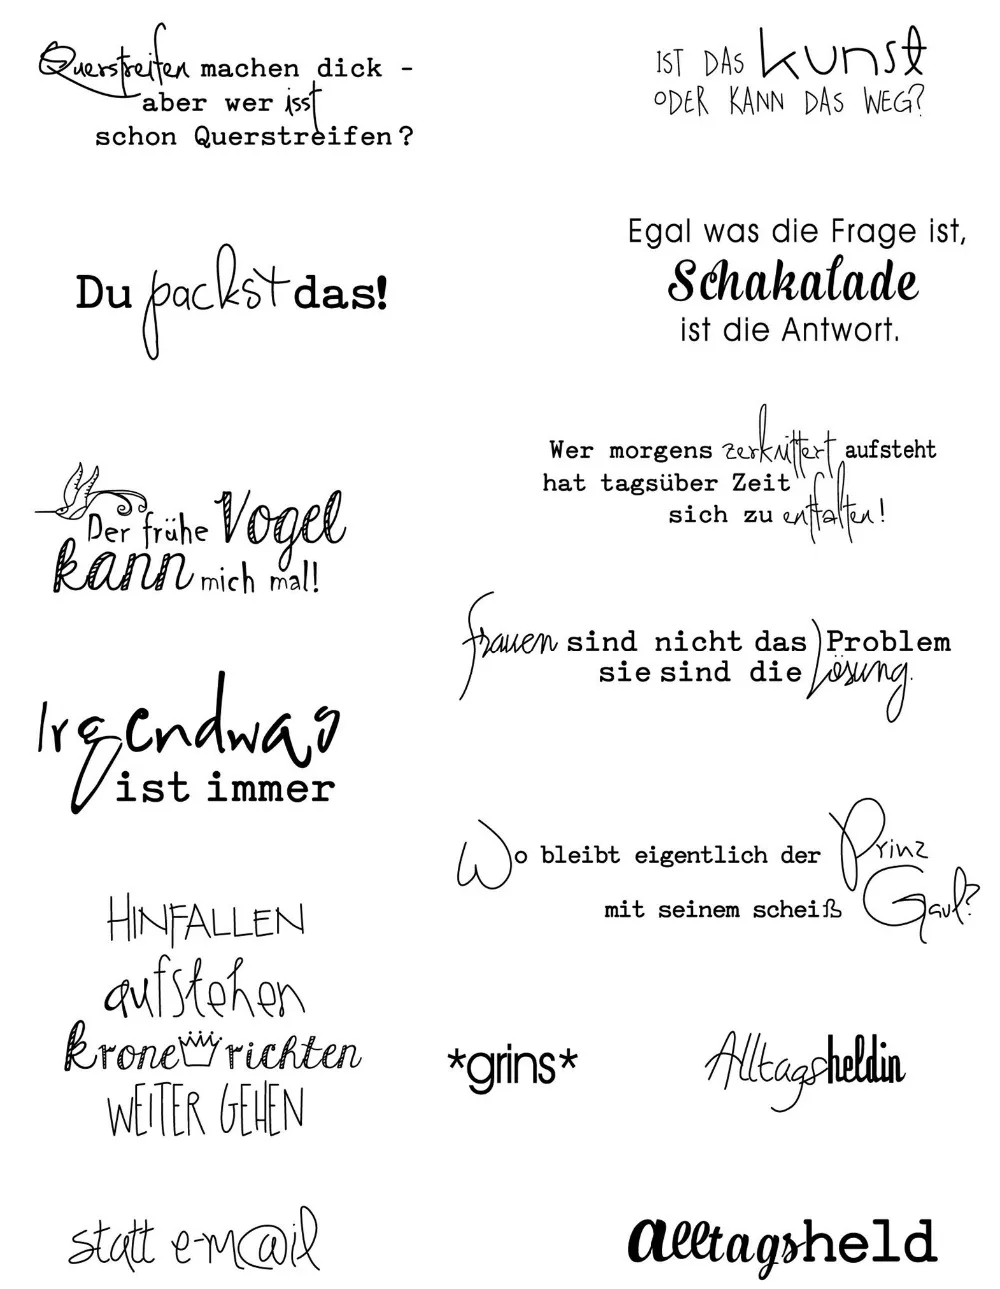 Querstreifen machen dick -
aber wer isst
schon Querstreifen?
IST DAS kunst
ODER KANN DAS WEG?
Du packst das!
Egal was die Frage ist,
Schakalade
ist die Antwort.
Wer morgens zerknittert aufsteht
hat tagsüber Zeit
sich zu entfalten!
Der frühe Vogel
kann mich mal!
frauen sind nicht das Problem
sie sind die Lösung.
Irgendwas
ist immer
Wo bleibt eigentlich der Prinz
mit seinem scheiß Gaul?
HINFALLEN
aufstehen
krone richten
WEITER GEHEN
*grins*
Alltagsheldin
statt e-m@il
alltagsheld